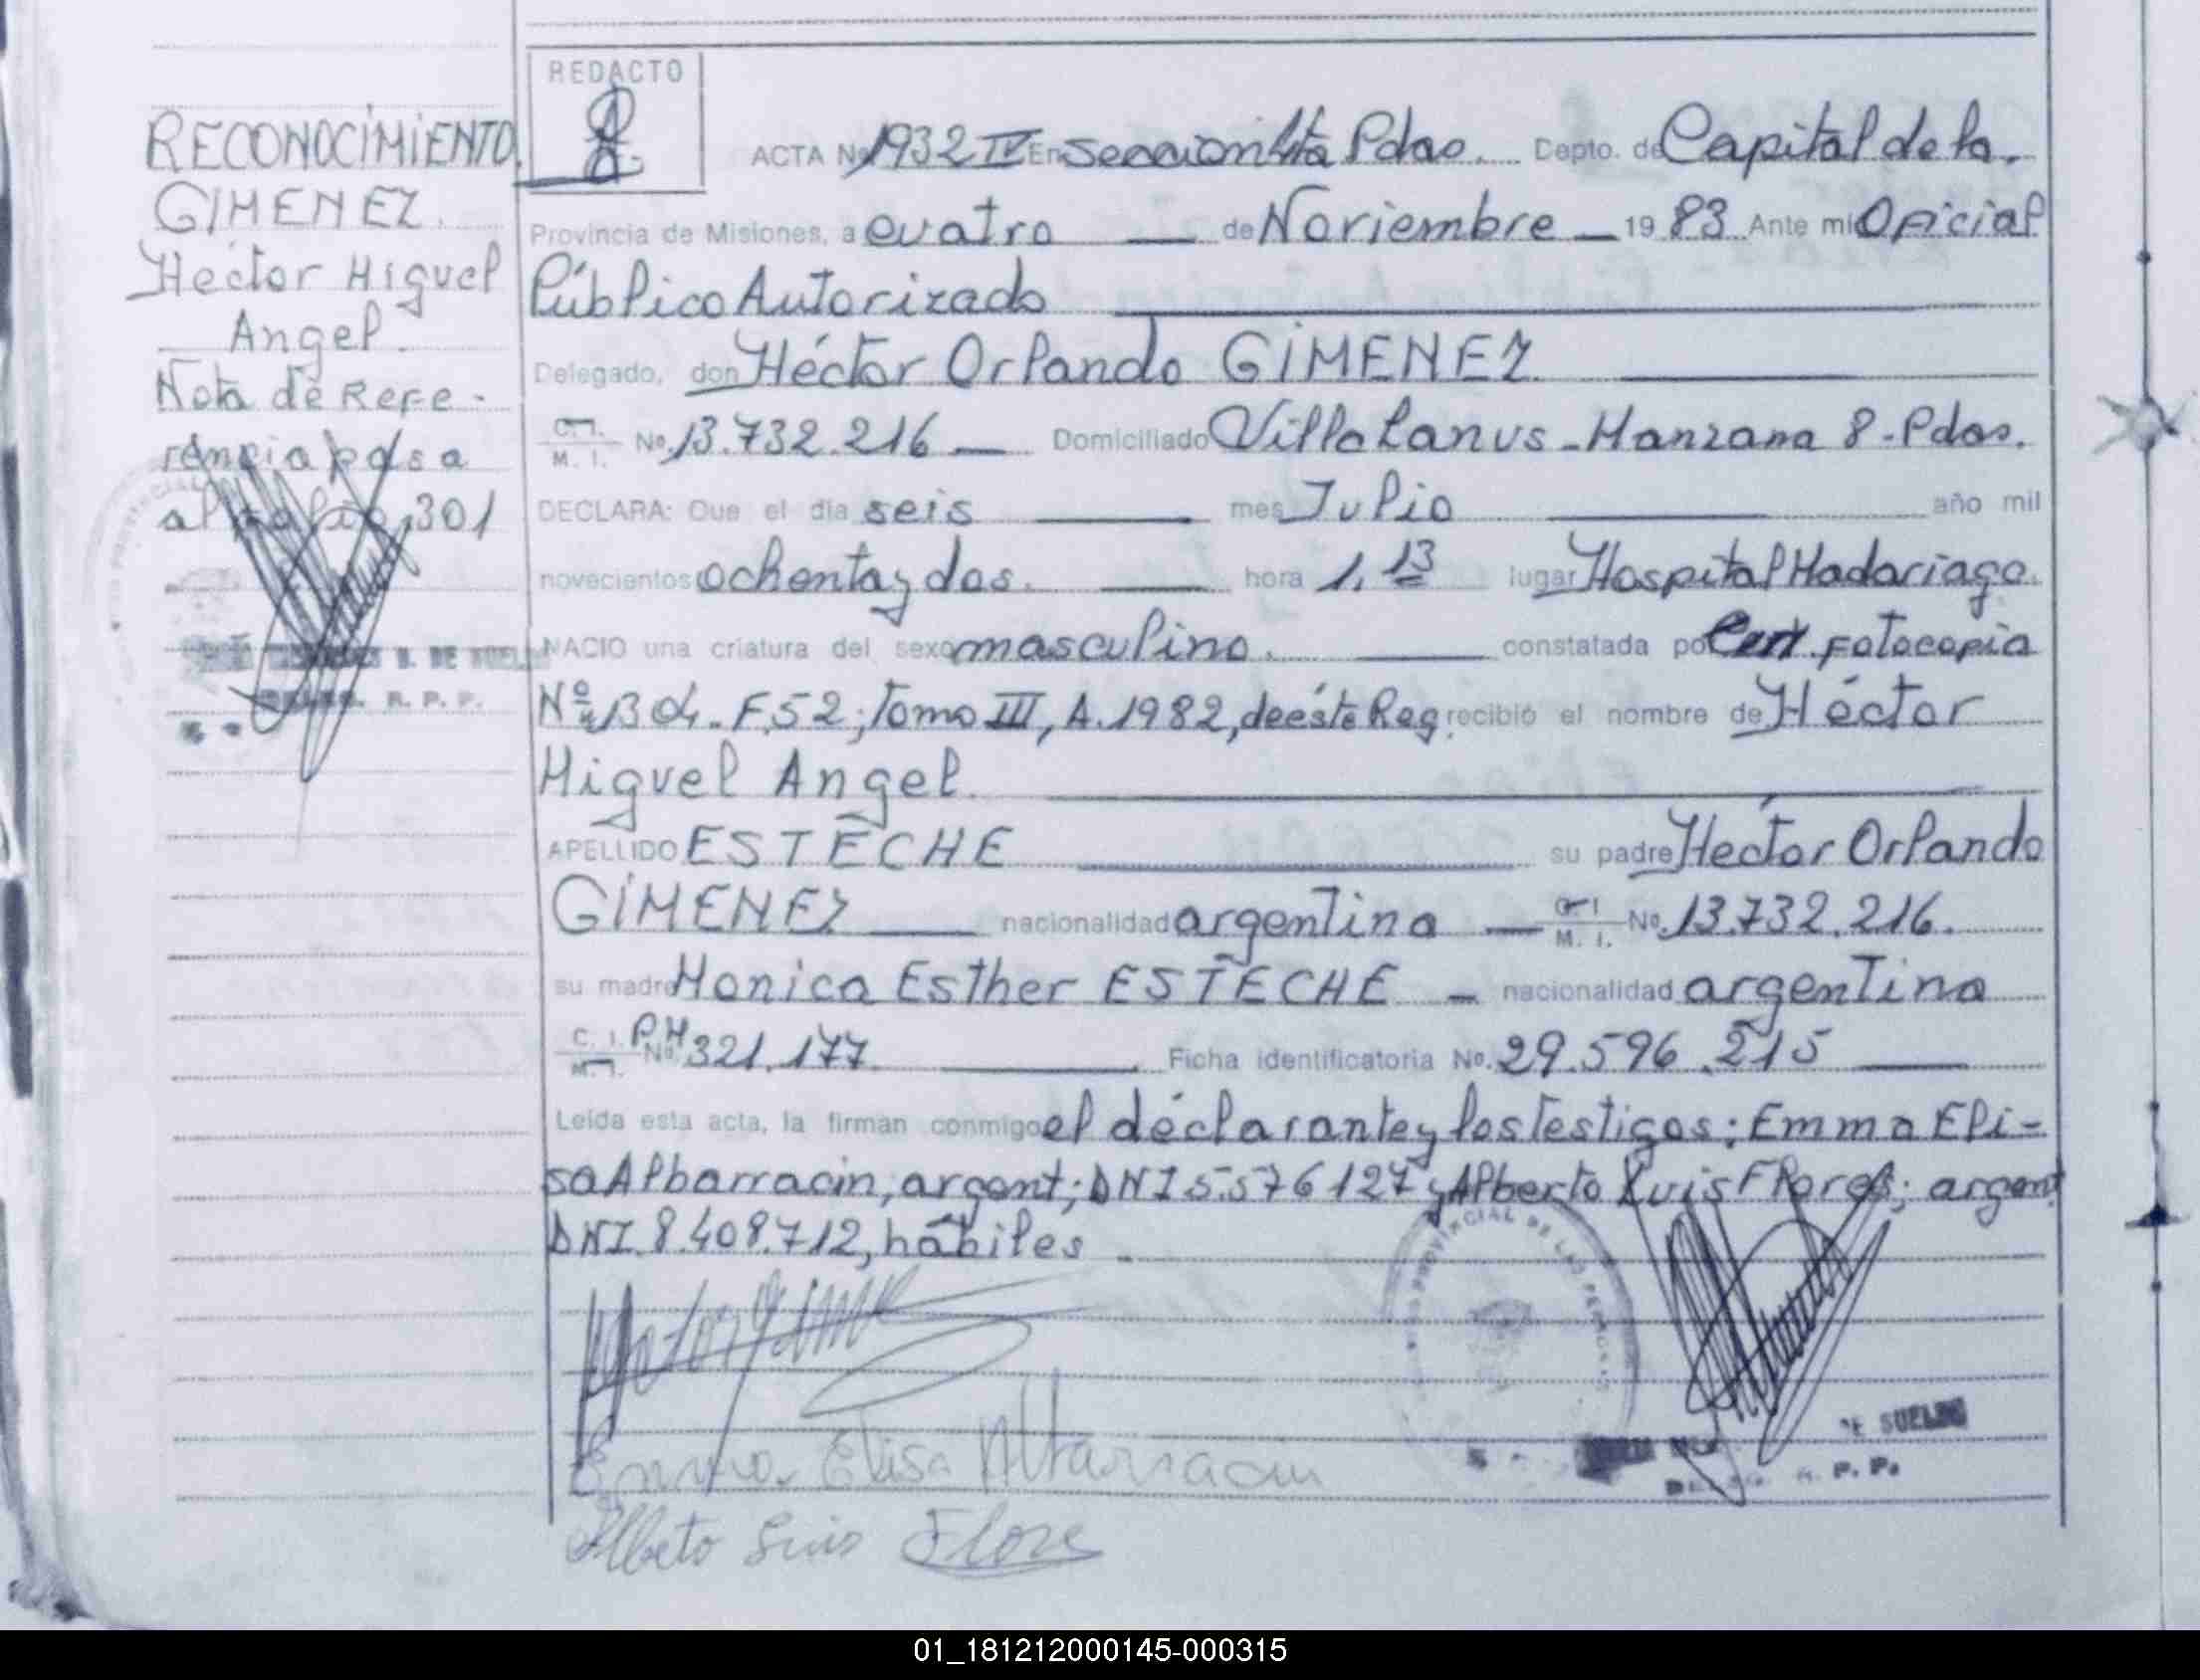 RECONOCIMIENTO.
GIMENEZ.
Hector Miguel
Angel.
Nota de Refe-
rencia pasa
al folio 301
REDACTO
ACTA No 1932 IV En sección 4ta Pdas. Depto. de Capital de la.
Provincia de Misiones, a cuatro de Noviembre 19 83 Ante mi Oficial
Público Autorizado
Delegado, don Héctor Orlando GIMENEZ
C. I. M. I. No. 13.732.216 Domiciliado Villa Lanus - Manzana 8 - Pdas.
DECLARA: Que el día seis mes Julio año mil
novecientos ochenta y dos. hora 1,13 lugar Hospital Madariaga.
NACIO una criatura del sexo masculino. constatada por Cert. fotocopia
Nº 1304. F.52; Tomo III, A. 1982, de éste Reg. recibió el nombre de Héctor
Miguel Angel.
APELLIDO ESTECHE su padre Héctor Orlando
GIMENEZ nacionalidad argentina C. I. M. I. No. 13.732.216.
su madre Monica Esther ESTECHE nacionalidad argentina
C. I. M. I. P.M No. 321.177 Ficha identificatoria No. 29.596.215
Leída esta acta, la firman conmigo el declarante y los testigos: Emma Eli-
sa Albarracin, argent; DNI 5.576127 y Alberto Luis Flores; argent
DNI. 8.408.712, hábiles
PROVINCIAL DE LAS PERSONAS
Emma Elisa Albarracin
Alberto Luis Flores
DE SUELDO
R. P. P.
01_181212000145-000315